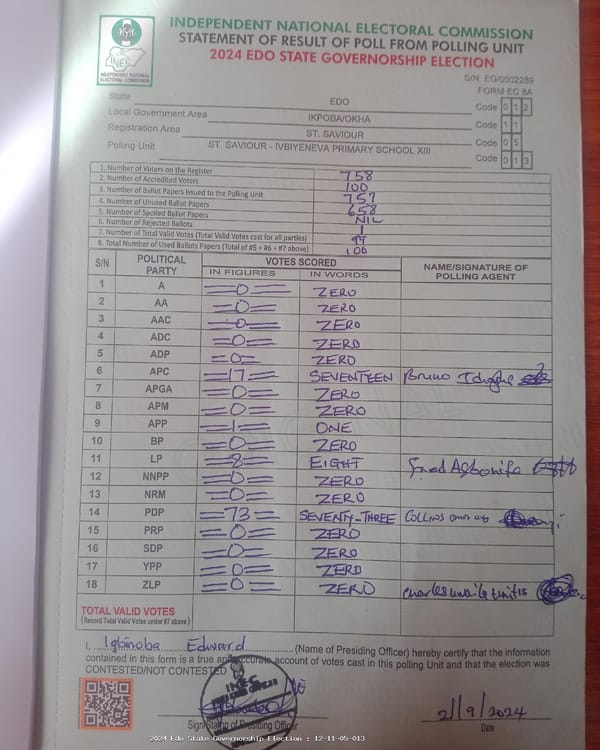 INDEPENDENT NATIONAL ELECTORAL COMMISSION
STATEMENT OF RESULT OF POLL FROM POLLING UNIT
2024 EDO STATE GOVERNORSHIP ELECTION
INEC
INDEPENDENT NATIONAL ELECTORAL COMMISSION
S/N: EG/0002289
FORM EC 8A
State EDO Code 0 1 2
Local Government Area IKPOBA/OKHA Code 1 1
Registration Area ST. SAVIOUR Code 0 5
Polling Unit ST. SAVIOUR - IVBIYENEVA PRIMARY SCHOOL XIII Code 0 1 3
1. Number of Voters on the Register 758
2. Number of Accredited Voters 100
3. Number of Ballot Papers Issued to the Polling Unit 757
4. Number of Unused Ballot Papers 658
5. Number of Spoiled Ballot Papers NIL
6. Number of Rejected Ballots 1
7. Number of Total Valid Votes (Total Valid Votes cast for all parties) 99
8. Total Number of Used Ballots Papers (Total of #5 + #6 + #7 above) 100
S/N POLITICAL PARTY VOTES SCORED NAME/SIGNATURE OF POLLING AGENT
IN FIGURES IN WORDS
1 A =0= ZERO
2 AA =0= ZERO
3 AAC =0= ZERO
4 ADC =0= ZERO
5 ADP =0= ZERO
6 APC =17= SEVENTEEN Bruno
7 APGA =0= ZERO
8 APM =0= ZERO
9 APP =1= ONE
10 BP =0= ZERO
11 LP =8= EIGHT Agbonifo
12 NNPP =0= ZERO
13 NRM =0= ZERO
14 PDP =73= SEVENTY-THREE Collins
15 PRP =0= ZERO
16 SDP =0= ZERO
17 YPP =0= ZERO
18 ZLP =0= ZERO Charles
TOTAL VALID VOTES
(Record Total Valid Votes under #7 above)
I, Igbinoba Edward (Name of Presiding Officer) hereby certify that the information
contained in this form is a true and accurate account of votes cast in this polling Unit and that the election was
CONTESTED/NOT CONTESTED
INEC
Sign/Stamp of Presiding Officer
21/9/2024
Date
2024 Edo State Governorship Election : 12-11-05-013